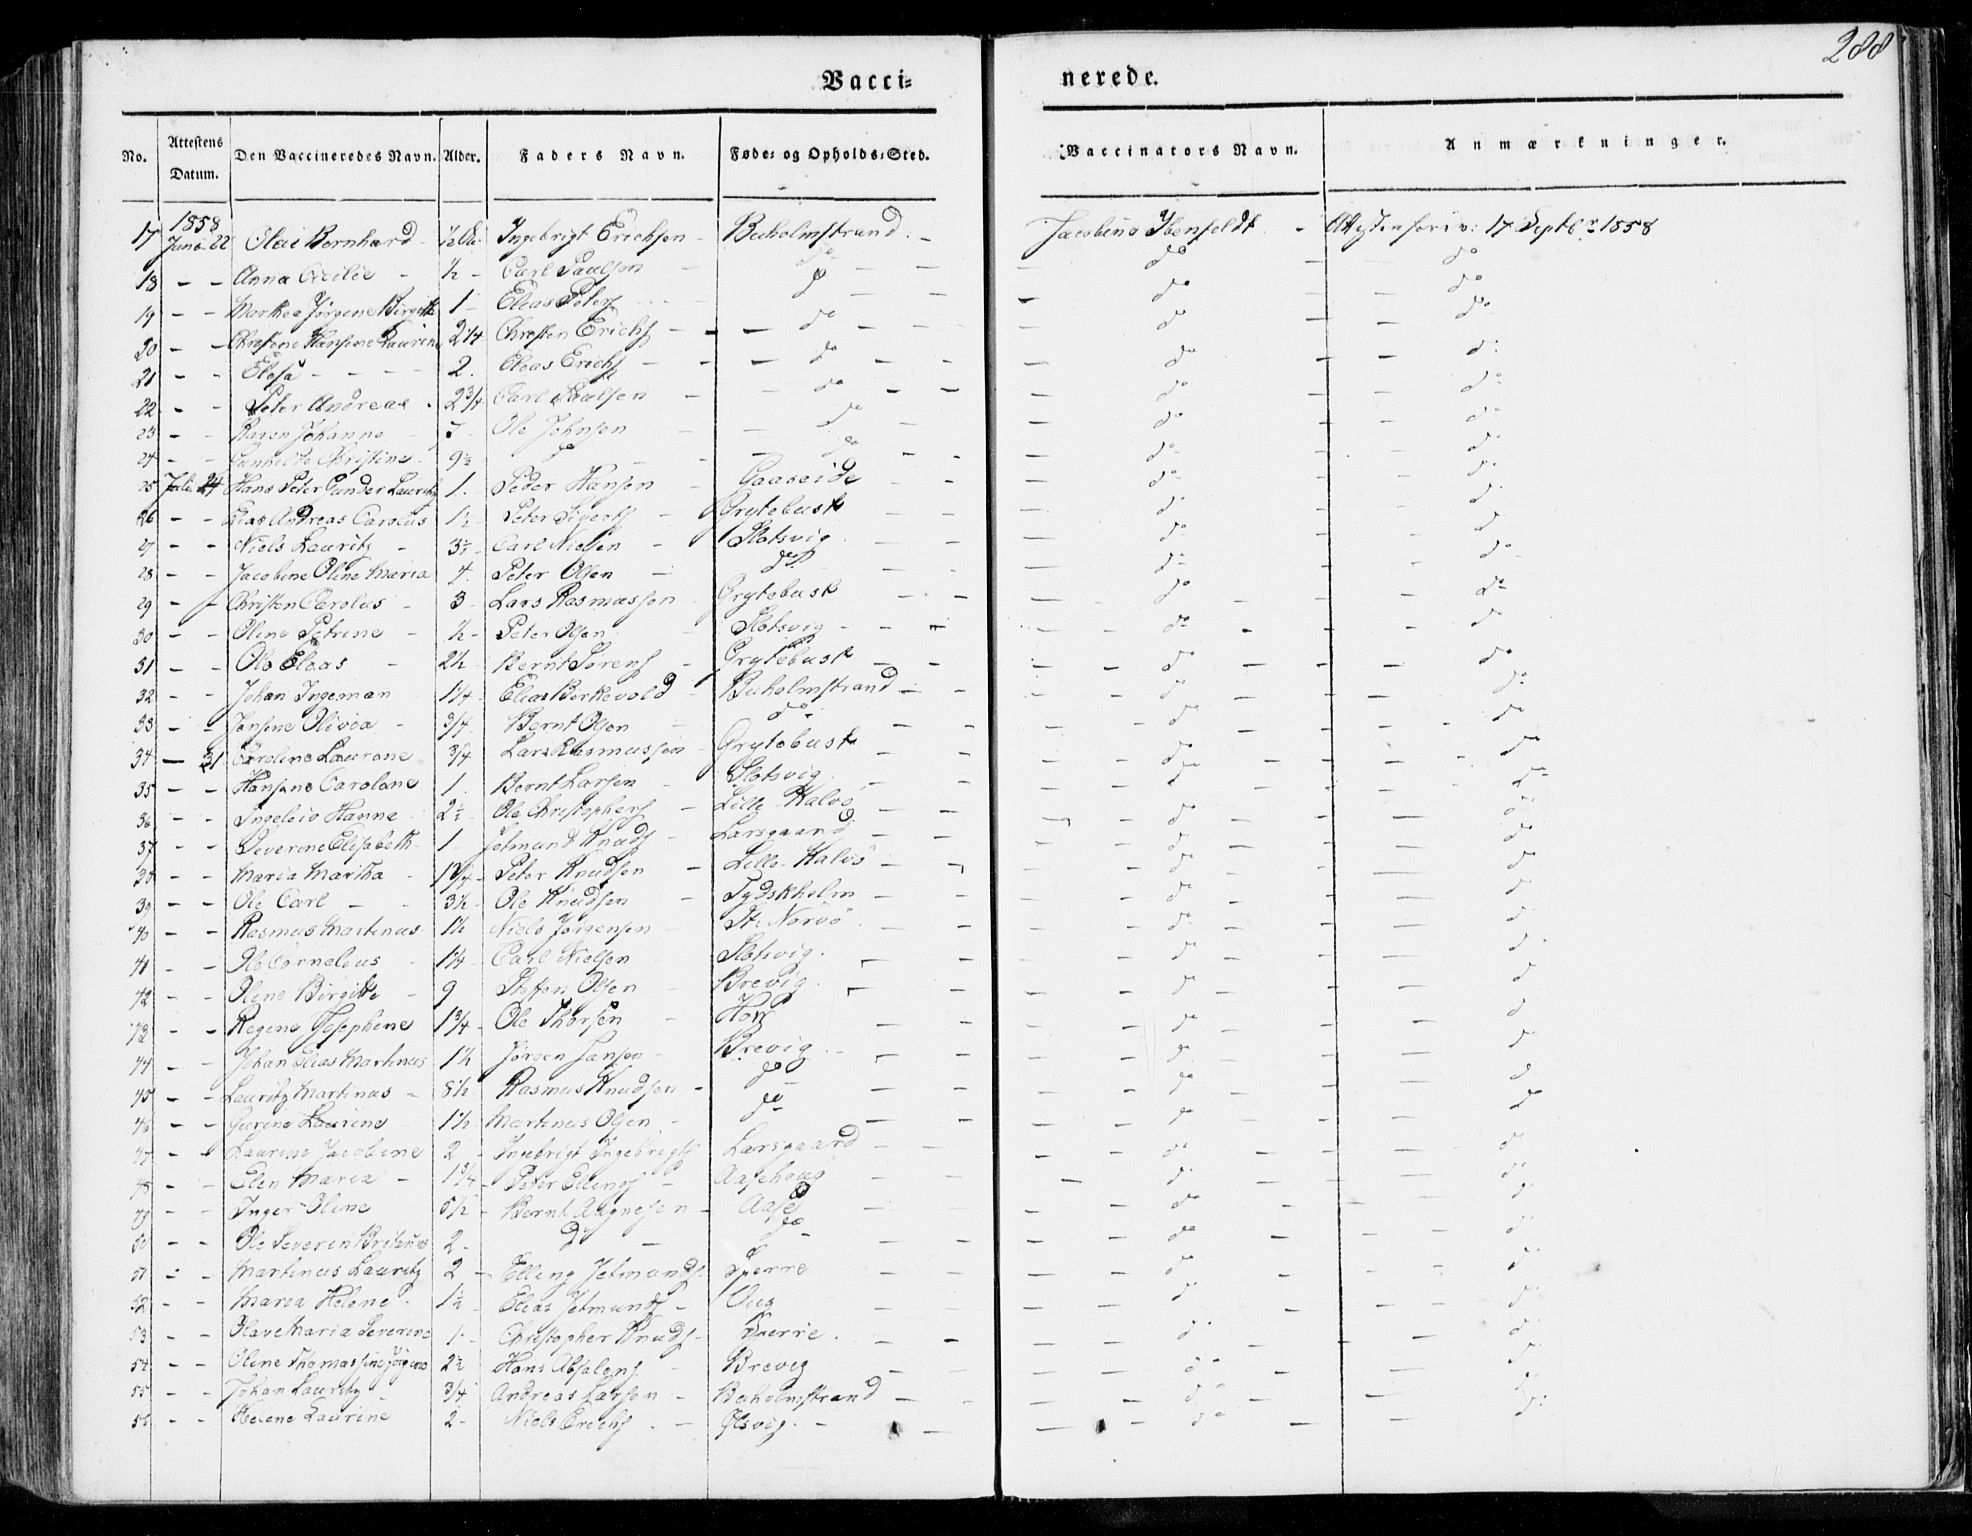 288
Vacci= nerede.
No. Attestens Datum. Den Vaccineredes Navn. Alder. Faders Navn. Føde= og Opholds=Sted. Vaccinators Navn. Anmærkninger.
1858
17 Juni 22 Olai Bernhard ½ Ingebrigt Erichsen Buholmstrand. Jacobina Ibenfeldt 17 Septbr 1858
18 - - Anna Cecilie - ½ - Carl Paulsen do - - do do
19 - - Jørgine Birgitte 1 - Elias Peters do - - do do
20 - - Christine Hansine Laurine 2¼ Christen Erichs - do - - do do
21 - - - - - 2. Elias Erichs - do - - do do
22 - - Peter Andreas. 2¾ Carl Paulsen do - - do do
23 - - Karen Johanne 5 - Ole Johnsen do - do do
24 - - Christine 9½ do - do - - do do
25 Juli 24 Hans Peter Gunder Lauritz 1. Peder Hansen - Gaaseide - - do do
26 - - Elias Andreas Carolus 1½ Peter Siverts - Grytebust - - do do
27 - - Niels Lauritz - 3½ - Carl Nielsen - Slotsvig - - do do
28 - - Jacobine Oline Maria 4. Peter Olsen - do - - do do
29 - - Christen Carolus - 3 - Lars Rasmussen Grytebust - - do do
30 - - Oline Petrine - ½ - Peter Olsen Slotsvig - - - do do
31 - - Ole Elias - 2½ Bernt Sørens - Grytebust - - do do
32 - - Johan Ingeman 1¼ - Elias Berkevold - Buholmstrand - - do do
33 - - Jensine Olivia - ¾ - Bernt Olsen - do - - do do
34 - 31 Caroline Laurane ¾ Lars Rasmussen - Grytebust do do
35 - - Hansine Carolane 1. Bernt Larsen - Slotsvig. - do do
36 - - Hanna 2½ - Ole Christophers - Lille Kalvø - - do do
37 - - Severine Elisabeth 1 - Jetmund Knuds - Larsgaard - - do do
38 - - Maria Martha - 1¾ - Peter Knudsen - Lille Kalvø - do do
39 - - Ole Carl - - 3½ - Ole Knudsen - Tydskholm - - do do
40 - - Rasmus Martinus 1½ Niels Jørgensen - St: Nørvø. - do do
41 - - Ole Cornelius - 1¼ - Carl Nielsen Slotsvig. - do do
42 - - Oline Birgitte - 9 Steffen Olsen - Brevig. - do do
43 - - Regine Josephine 1¾ - Ole Thorsen - - - do do
44 - - Johan Elias Martinus 1½ Jørgen Jansen - Brevig. - - do do
45 - - Lauritz Martinus - 8½ Rasmus Knudsen - do - - do do
46 - - Gurine Laurine 1½ Martinus Olsen - do - - do do
47 - - Laurine Jacobine 2 - Ingebrigt Ingebrigts Larsgaard - - do do
48 - - Elen Maria - 1¾ - Peter Ellings - Aasehoug - - do do
49 - - Inger Oline 5½ - Bernt - Aase - do do
50 - - Ole Severin 2 - do - do - - do do
51 - - Martinus Lauritz 2 - Elling Jetmunds Sperre - - do do
52 - - Maria Helene. 1½ Elias Jetmunds - - do do
53 - - Olave Maria Severine 1 - Christopher Knuds - Sperre. - - do do
54 - - Oline Thomassine Jørgine 2½ Hans Absalons - Brevig - - do do
55 - - Johan Lauritz - ¾ Andreas Larsen - Buholmstrand - - do do
56 - - Helene Laurine 2 - Niels Erichs. - - - do do